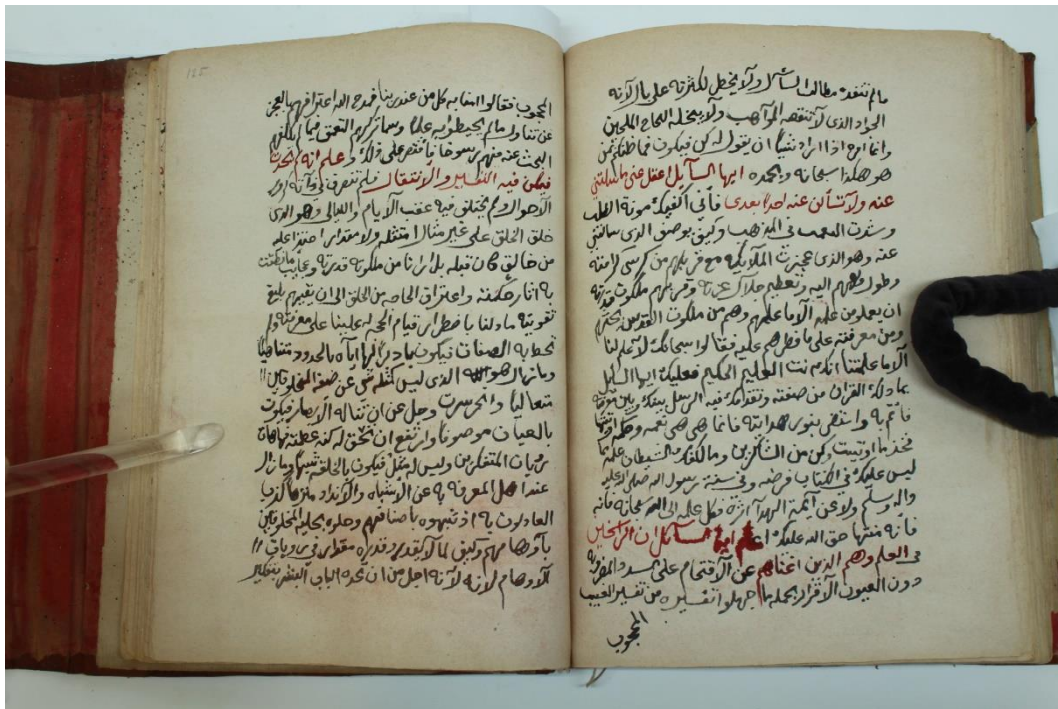 ما لم تنفده مطالب السائل ولا يخطر لكثرته على بال لانه
الجواد الذى لا تنقصه المواهب ولا يبخله الحاح الملحين
وانما امره اذا اراد شيئا ان يقول له كن فيكون فما ظنكم بمن
هو هكذا سبحانه وبحمده ايها السآيل اعقل عنى ما سالتنى
عنه ولا تسألن عنه احدا بعدى فأنى اكفيك مونة الطلب
وشدت التعمب فى المذهب وكيف يوصف الذى سالتنى
عنه وهو الذى عجزت الملآئكة مع قربهم من كرسى كرامته
وطول ولههم اليه وتعظيم جلال عزته وقربهم من ملكوت قدرته
ان يعلمو من علمه الا ما علمهم وهم من ملكوت القدس بحيثهم
ومن معرفته على ما فطرهم عليه فقالوا سبحانك لا علم لنا
الا ما علمتنا انك انت العليم الحكيم فعليك ايها السايل
بما دلك القران من صفته وتقدمك فيه الرسل بينك وبين معرفته
فأتم به واستضئ بنور هدايته فانما هى نعمه وحكمه اوتيتها
فخذ ما اوتيت وكن من الشاكرين وما كلفك الشيطان علمه مما
ليس عليك فى الكتاب فرضه ولا فى سنة رسول الله صلى الله عليه
واله وسلم ولا عن آيمة الهدا اثره فكل علمه الى الله سبحانه فانه
فانه منتها حق الله عليك اعلم ايها السآئل ان الراسخين
فى العلم وهم الذين اغناهم عن الاقتحام على السدد المضروبه
دون الغيوب الاقرار بجملة ما جهلوا تفسيره من تفسير الغيب
المحجوب
125
المحجوب فقالوا امنا به كل من عند ربنا فمدح الله اعترافهم بالعجز
عن تناول ما لم يحيطو به علما وسما تركهم التعمق فيما لم يكلفهم
البحث عنه منهم رسوخا فاقتصر على ذلك واعلم انه لم يحدث
فيمكن فيه التغيير والانتقال ولم تتصرف فى ذاته
الاحوال ولم يختلف فيه عقب الايام والليالى وهو الذى
خلق الخلق على غير مثال امتثله ولا مقدار احتذا عليه
من خالق كان قبله بل ارانا من ملكوت قدرته وعجايب ما نطقت
به اثار حكمته واعتراف الحاجه من الخلق الى ان يقيمهم بلغ
تقويته ما دلنا باضطرار قيام الحجه له علينا على معرفته ولم
تحط به الصفات فيكون بادراكها اياه بالحدود متناهيا
وما زال هو الله الذى ليس كمثله شى عن صفة المخلوقين
متعاليا وانحسرت وجل عن ان تناله الابصار فيكون
بالعيان موصوفا وارتفع ان تحق له كنه عظمته فهاهات
رويات المتفكرين وليس له مثل فيكون بالخلقه شبها وما زال
عند اهل المعرفه به عن الاشباه والانداد منزها كذب
العادلون به اذ شبهوه باصنافهم وحلوه بحلية المخلوقين
بأوهامهم وكيف لما لا يقدر قدره مقدار فى رويات
الاوهام لانه اجل من ان تحده الباب البشر بتفكير